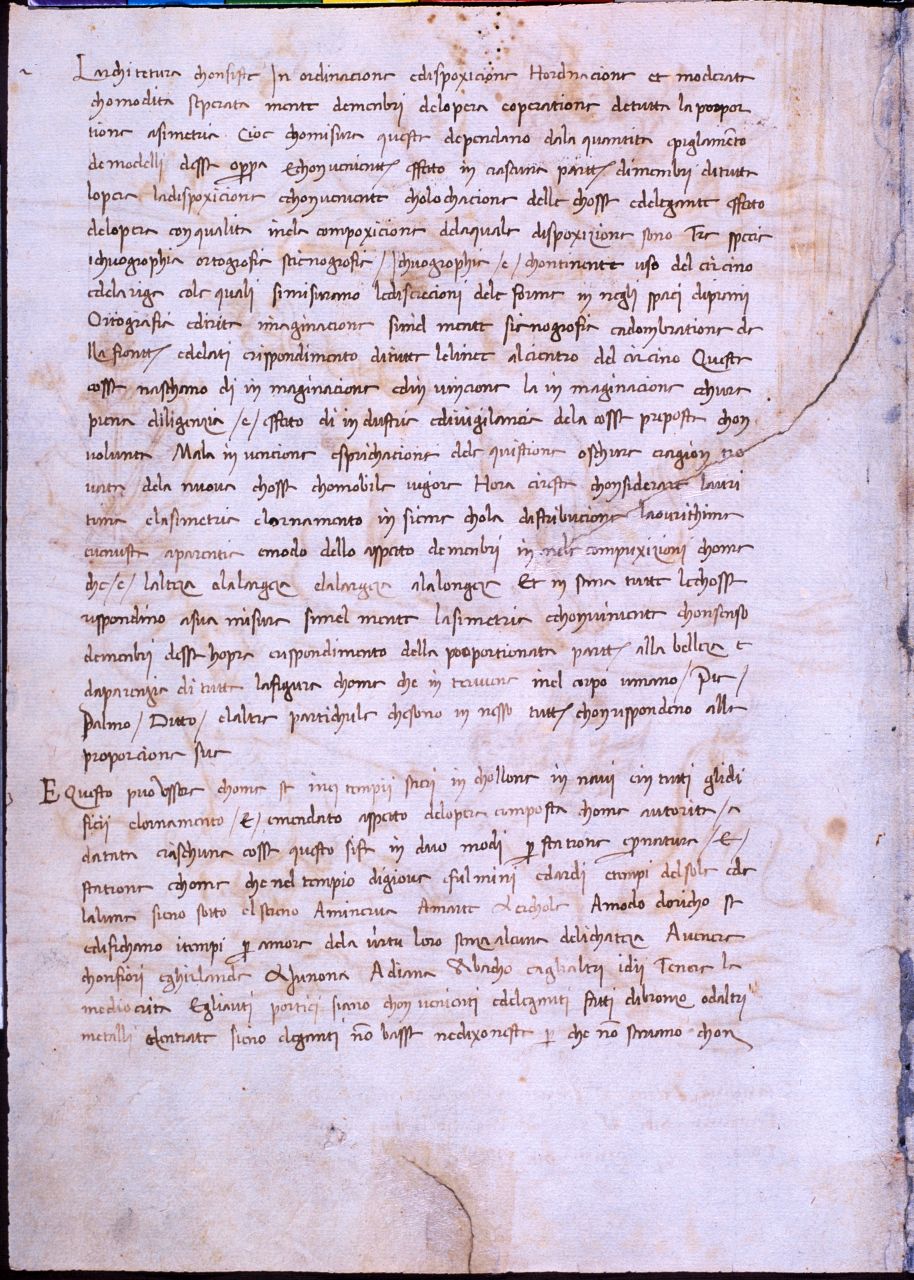 Larchitetura chonsiste In ordinacione edispoxicione Hordnacione et moderate
chomodita seperata mente demenbri delopera eoperatione detutta laporpor
tione asimetria Cioe chomisura queste dependano dala quantita epiglamēto
demodelli desse opꝑa echonvenient/ effetto in ciascuna part/ dimenbri ditutte
lopera ladispoxicione echonveniente cholochacione delle chosse edelegante effetto
delopera con qualita inela compoxicione delaquale dispoxizione sono Tre specie
ichuogrophia ortografia scienografia / Ichuogrophia /e/ chontinente uso del circino
edelariga cole quali simisurano lediscrecioni dele forme in negli spaci dipiani
Ortografia edirita imaginacione simil mente sienografia eadombratione de
lla fronte/ edelati erispondimento ditutte lelinee alcientro del circino Queste
cosse naschano di in maginacione edin vincione la in maginacione echura
piena diligenzia /e/ effetto di in dustria edivigilancia dela cossa proposta chon
volunta Mala in vencione esprichatione dele quistione oschure eragion tro
vate dela nuova chossa chomobile vigore Hora ciresta chonsiderare lauri
tima elasimetria elornamento in sieme chola distribucione laourithima
evenusta aparentia emodo dello aspetto demenbri in nele compuxizioni chome
che /e/ lalteza alalargeza elalargeza alalongeza Et in soma tutte lechosse
rispondino asua misura simel mente lasimetria echonviniente chonsenso
demenbri dessa hopra erispondimento della poportionata part/ alla belleza e
daparenzia di tutta lafigura chome che in terviene inel corpo umano / Pie /
Palmo / Ditto / elaltre partichule chesono in nesso tutt/ chonrispondeno alle
proporcione sue
E Questo puo essere chome si inei tempii sacri in chollone in navi ein tutti glidi
ficii elornamento /E/ emendato aspetto delopera composta chome autorita /e
datata ciaschuna cossa questo sista in duo modi ꝑ statione eꝑnatura /E/
statione chome che nel tempio digiove efulmini edardi etempi delsole ede
laluna sieno sotto elsereno Aminerva Amarte Aerchole Amodo doricho si
edifichano itempi ꝑ amore dela virtu loro senza alcuna delichateza Avenere
chonfiori eghirlande Ahunona A diana Abacho eaglialtri idii Tenere la
mediocrita Egliauti portici siano chonvenienti edeleganti fatti dibronzo odaltri
metalli elentrate sieno eleganti nō basse nedixoneste ꝑ che nō sariano chon